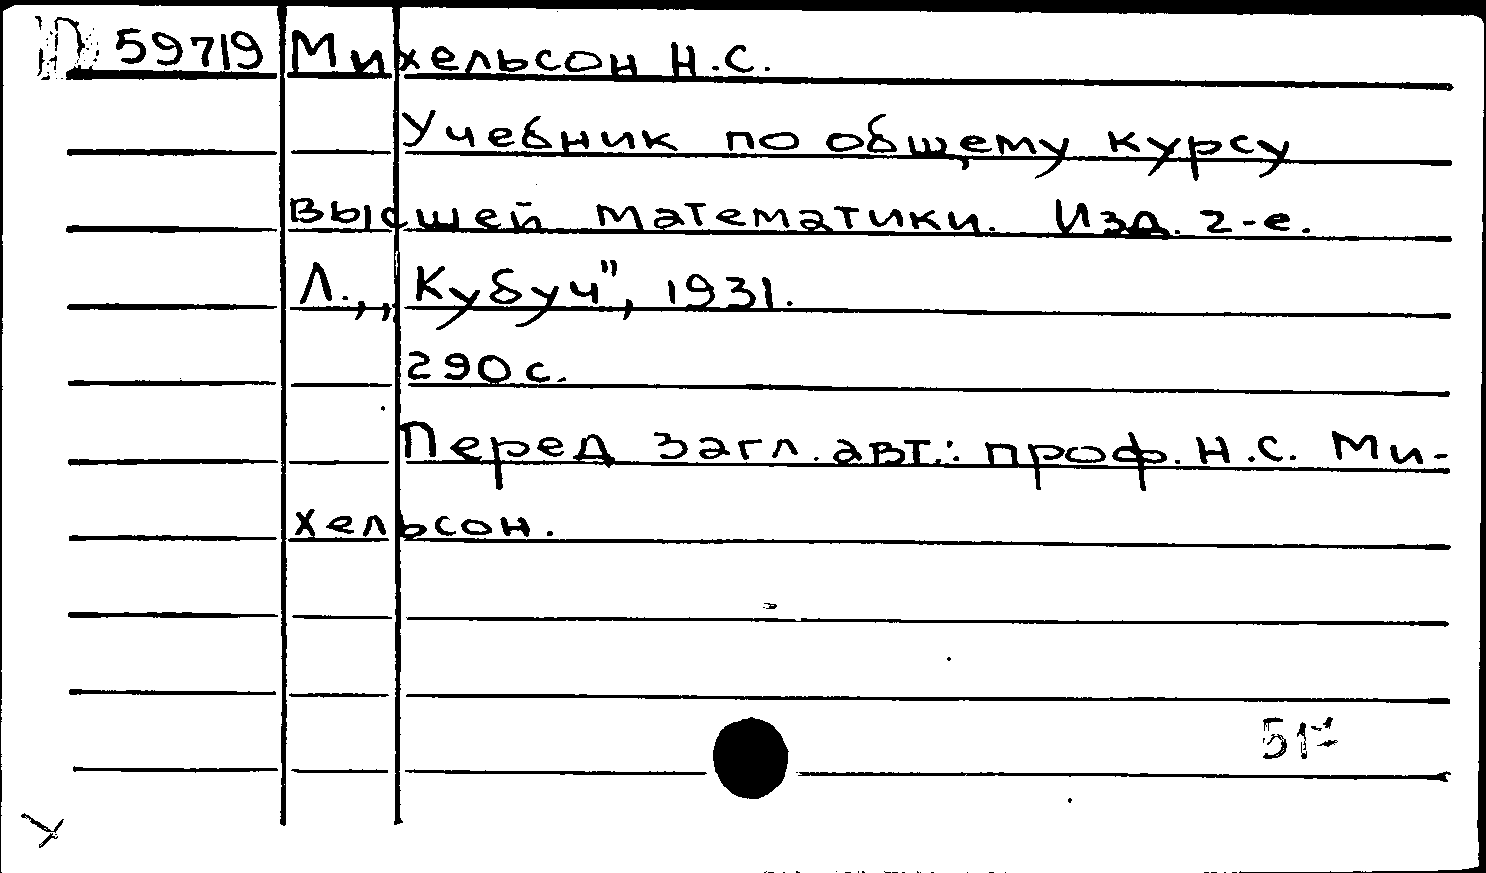 D 59719 Михельсон Н.С.
Учебник по общему курсу
высшей математики. Изд. 2-е.
Л., „Кубуч", 1931.
290 с.
Перед загл. авт.: проф. Н.С. Ми-
хельсон.